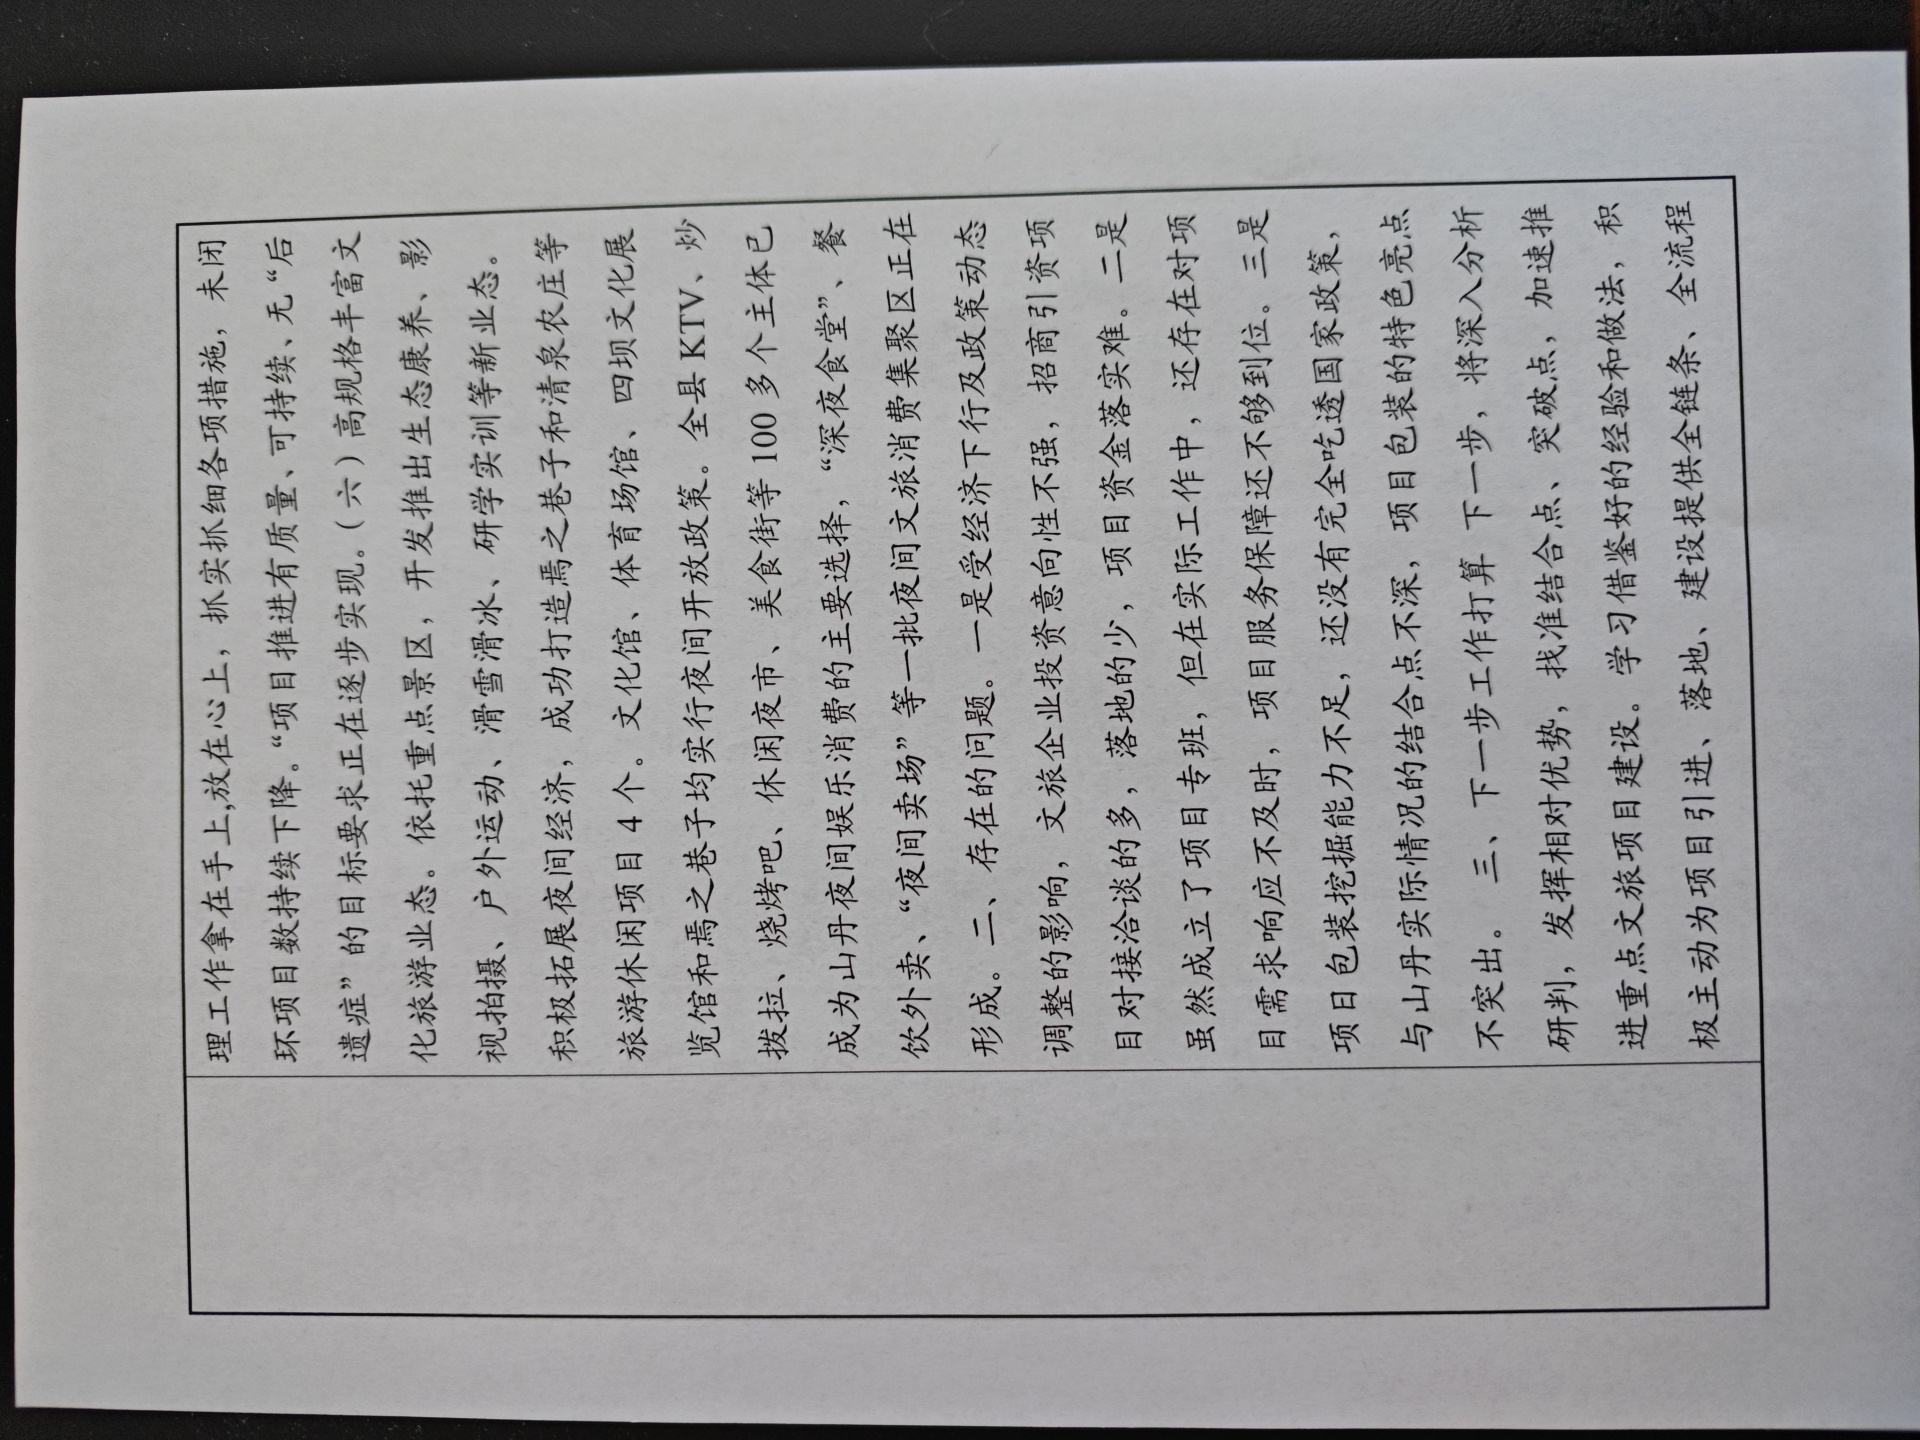 理工作拿在手上,放在心上，抓实抓细各项措施，未闭
环项目数持续下降。“项目推进有质量、可持续、无“后
遗症”的目标要求正在逐步实现。（六）高规格丰富文
化旅游业态。依托重点景区，开发推出生态康养、影
视拍摄、户外运动、滑雪滑冰、研学实训等新业态。
积极拓展夜间经济，成功打造焉之巷子和清泉农庄等
旅游休闲项目 4 个。文化馆、体育场馆、四坝文化展
览馆和焉之巷子均实行夜间开放政策。全县 KTV、炒
拨拉、烧烤吧、休闲夜市、美食街等 100 多个主体已
成为山丹夜间娱乐消费的主要选择，“深夜食堂”、餐
饮外卖、“夜间卖场”等一批夜间文旅消费集聚区正在
形成。二、存在的问题。一是受经济下行及政策动态
调整的影响，文旅企业投资意向性不强，招商引资项
目对接洽谈的多，落地的少，项目资金落实难。二是
虽然成立了项目专班，但在实际工作中，还存在对项
目需求响应不及时，项目服务保障还不够到位。三是
项目包装挖掘能力不足，还没有完全吃透国家政策，
与山丹实际情况的结合点不深，项目包装的特色亮点
不突出。三、下一步工作打算 下一步，将深入分析
研判，发挥相对优势，找准结合点、突破点，加速推
进重点文旅项目建设。学习借鉴好的经验和做法，积
极主动为项目引进、落地、建设提供全链条、全流程